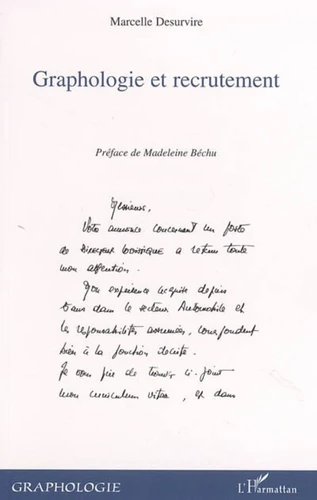 Marcelle Desurvire
Graphologie et recrutement
Préface de Madeleine Béchu
Messieurs,
Votre annonce concernant un poste
de Directeur Logistique a retenu toute
mon attention.
Mon expérience acquise depuis
5 ans dans le secteur Automobile et
les responsabilités assumées, correspondent
bien à la fonction décrite.
Je vous prie de trouver ci-joint
mon curriculum vitae, et dans
GRAPHOLOGIE
L'Harmattan